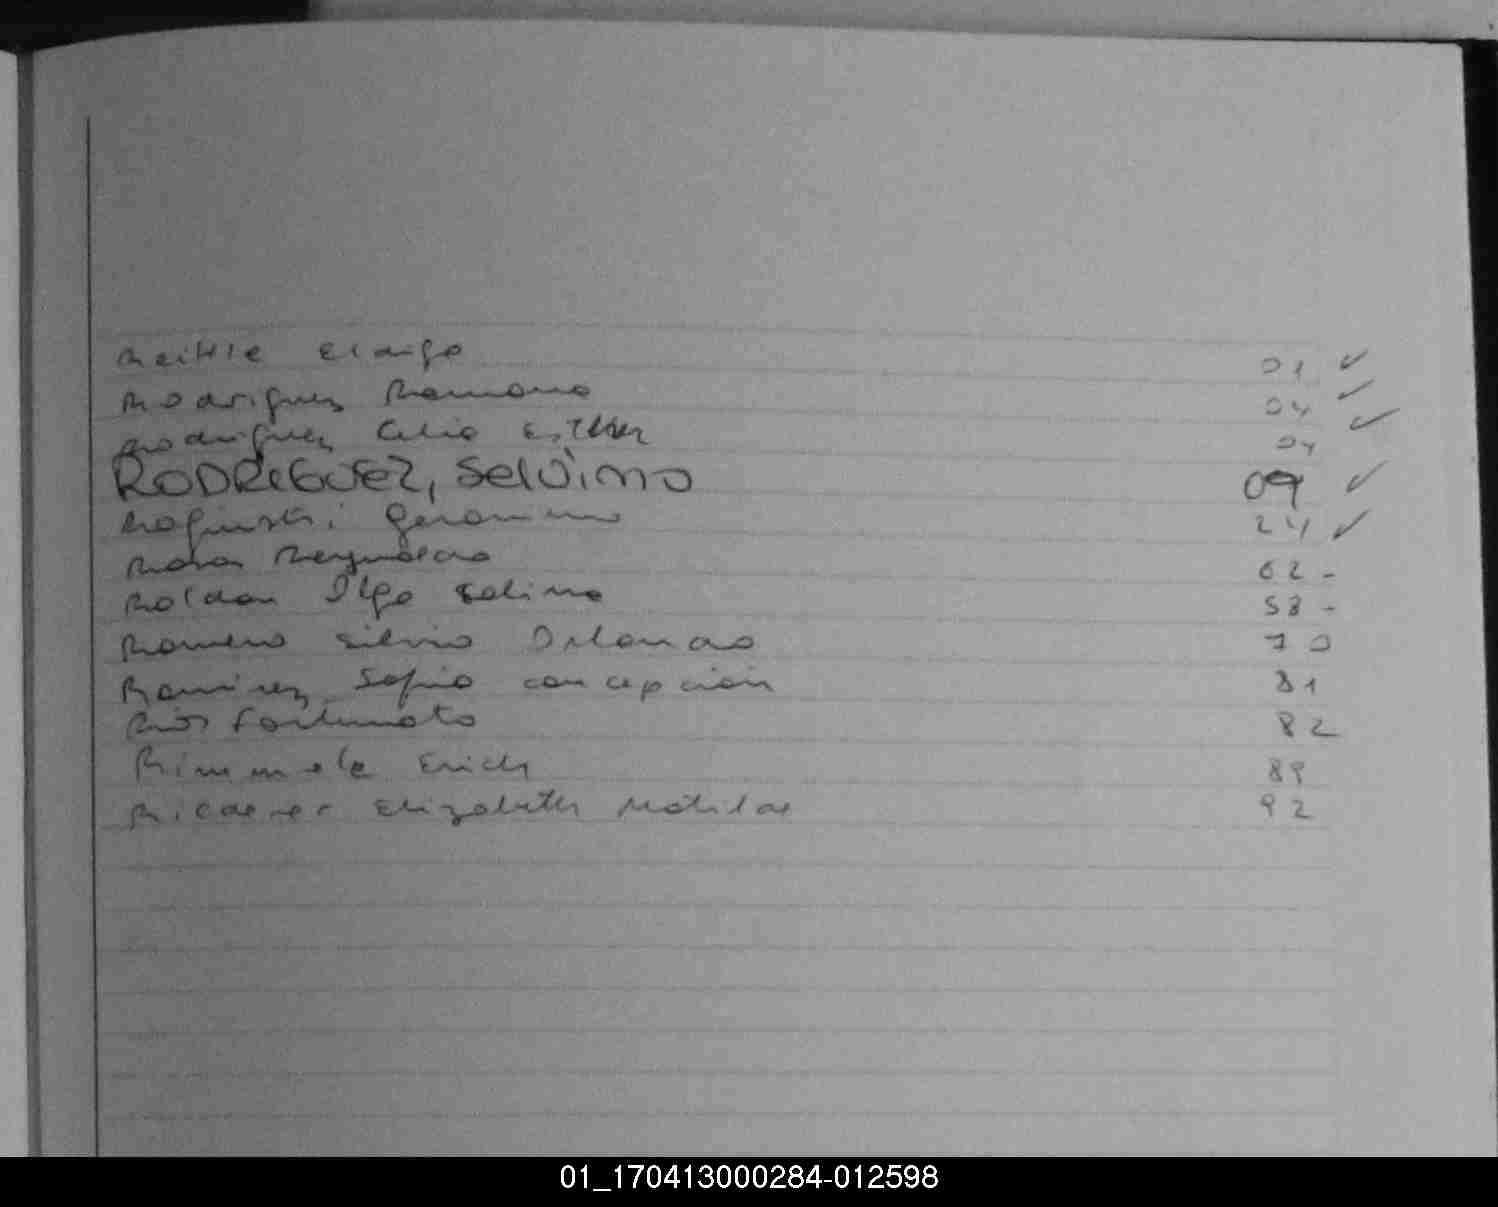 Rodriguez Ramona 04 ✓
Rodriguez Celia Esther 04 ✓
RODRIGUEZ, Selvimo 09 ✓
Geronimo 24 ✓
Reynaldo 62 -
Roldan Olga Selima 58 -
Romero Silvio Orlando 70
Ramirez Sofia concepción 81
Rios Fortunato 82
Rimmele Erich 89
Elizabeth Matilde 92
01_170413000284-012598